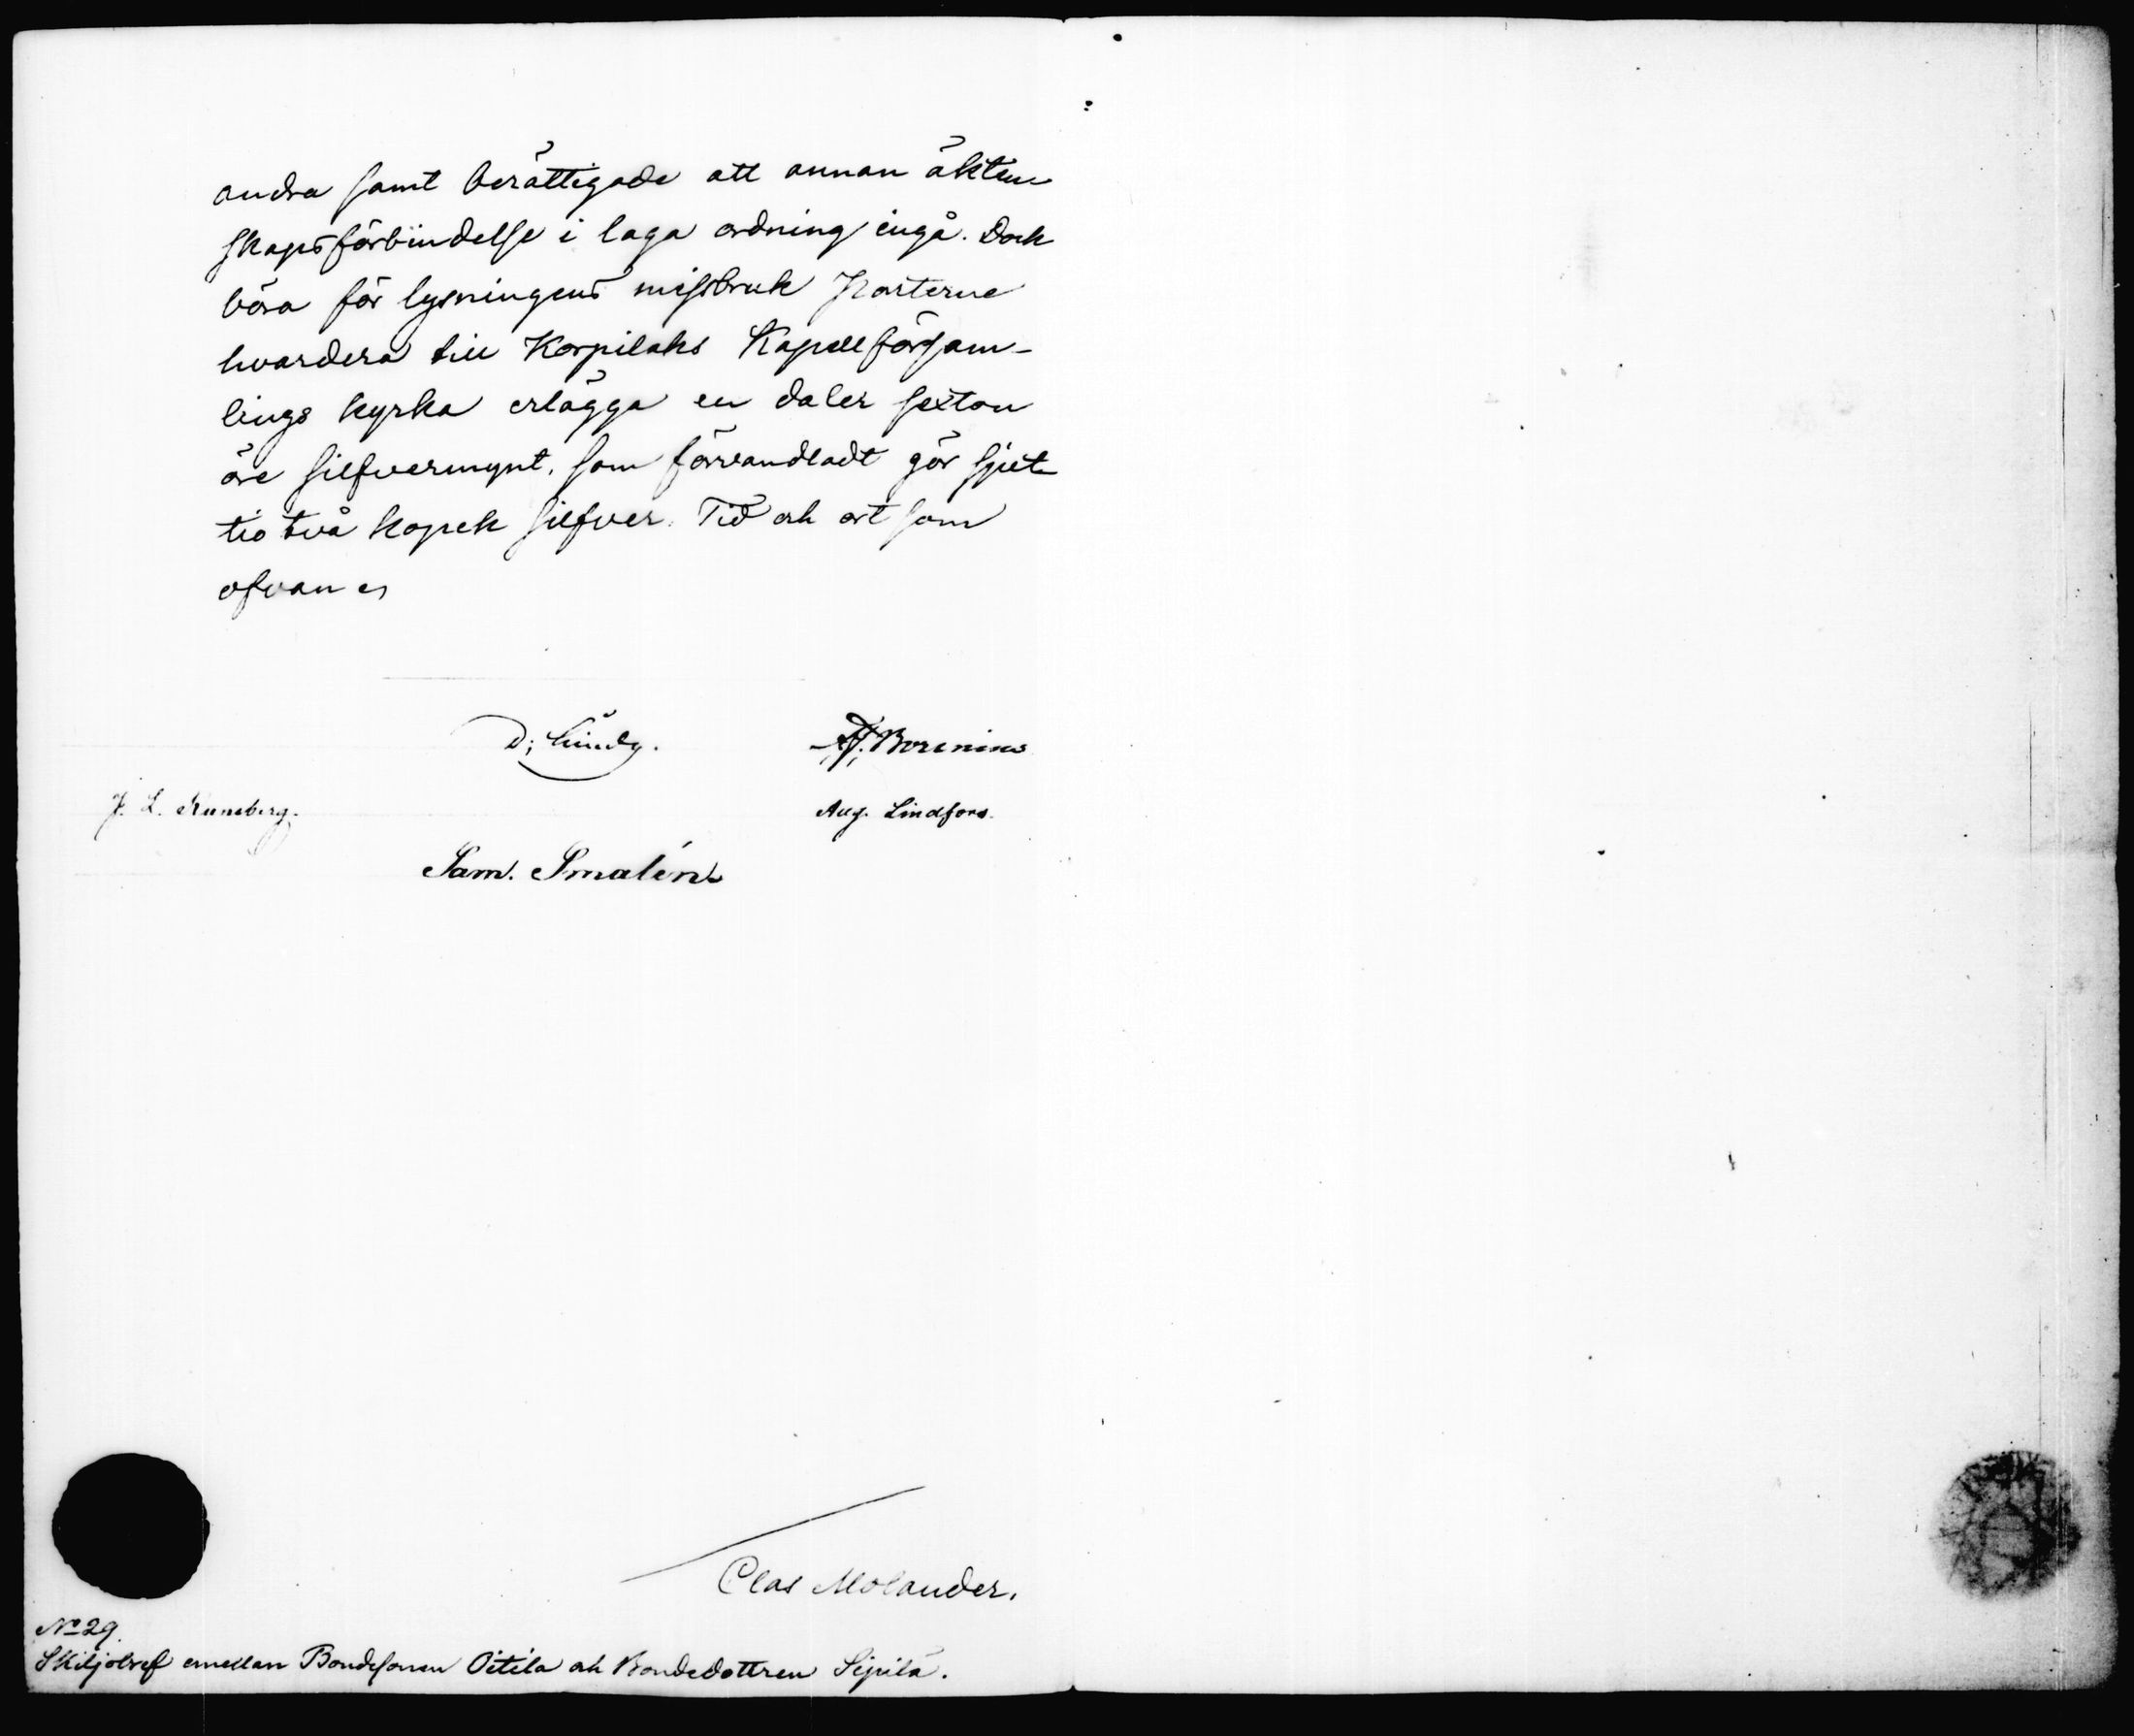 andra samt berättigade att annan äkten
skapsförbindelse i laga ordning ingå. Dock
böra för lysningens missbruk Parterne
hvardera till Korpilaks Kapellförsam-
lings kyrka erlägga en daler sexton
öre silfvermynt, som förvandladt gör sjut
tio två kopek silfver. Tid och ort som
ofvan
Borenius
J. L. Runeberg.
Aug. Lindfors.
Sam. Smalén
Clas Molander.
No 29.
Skiljobref emellan Bondesonen Oitila och Bondedottren Sipilä.